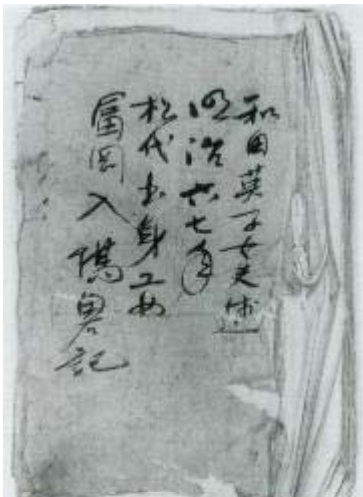 和田英子女史述
明治六七年
松代出身工女
富岡入場畧記